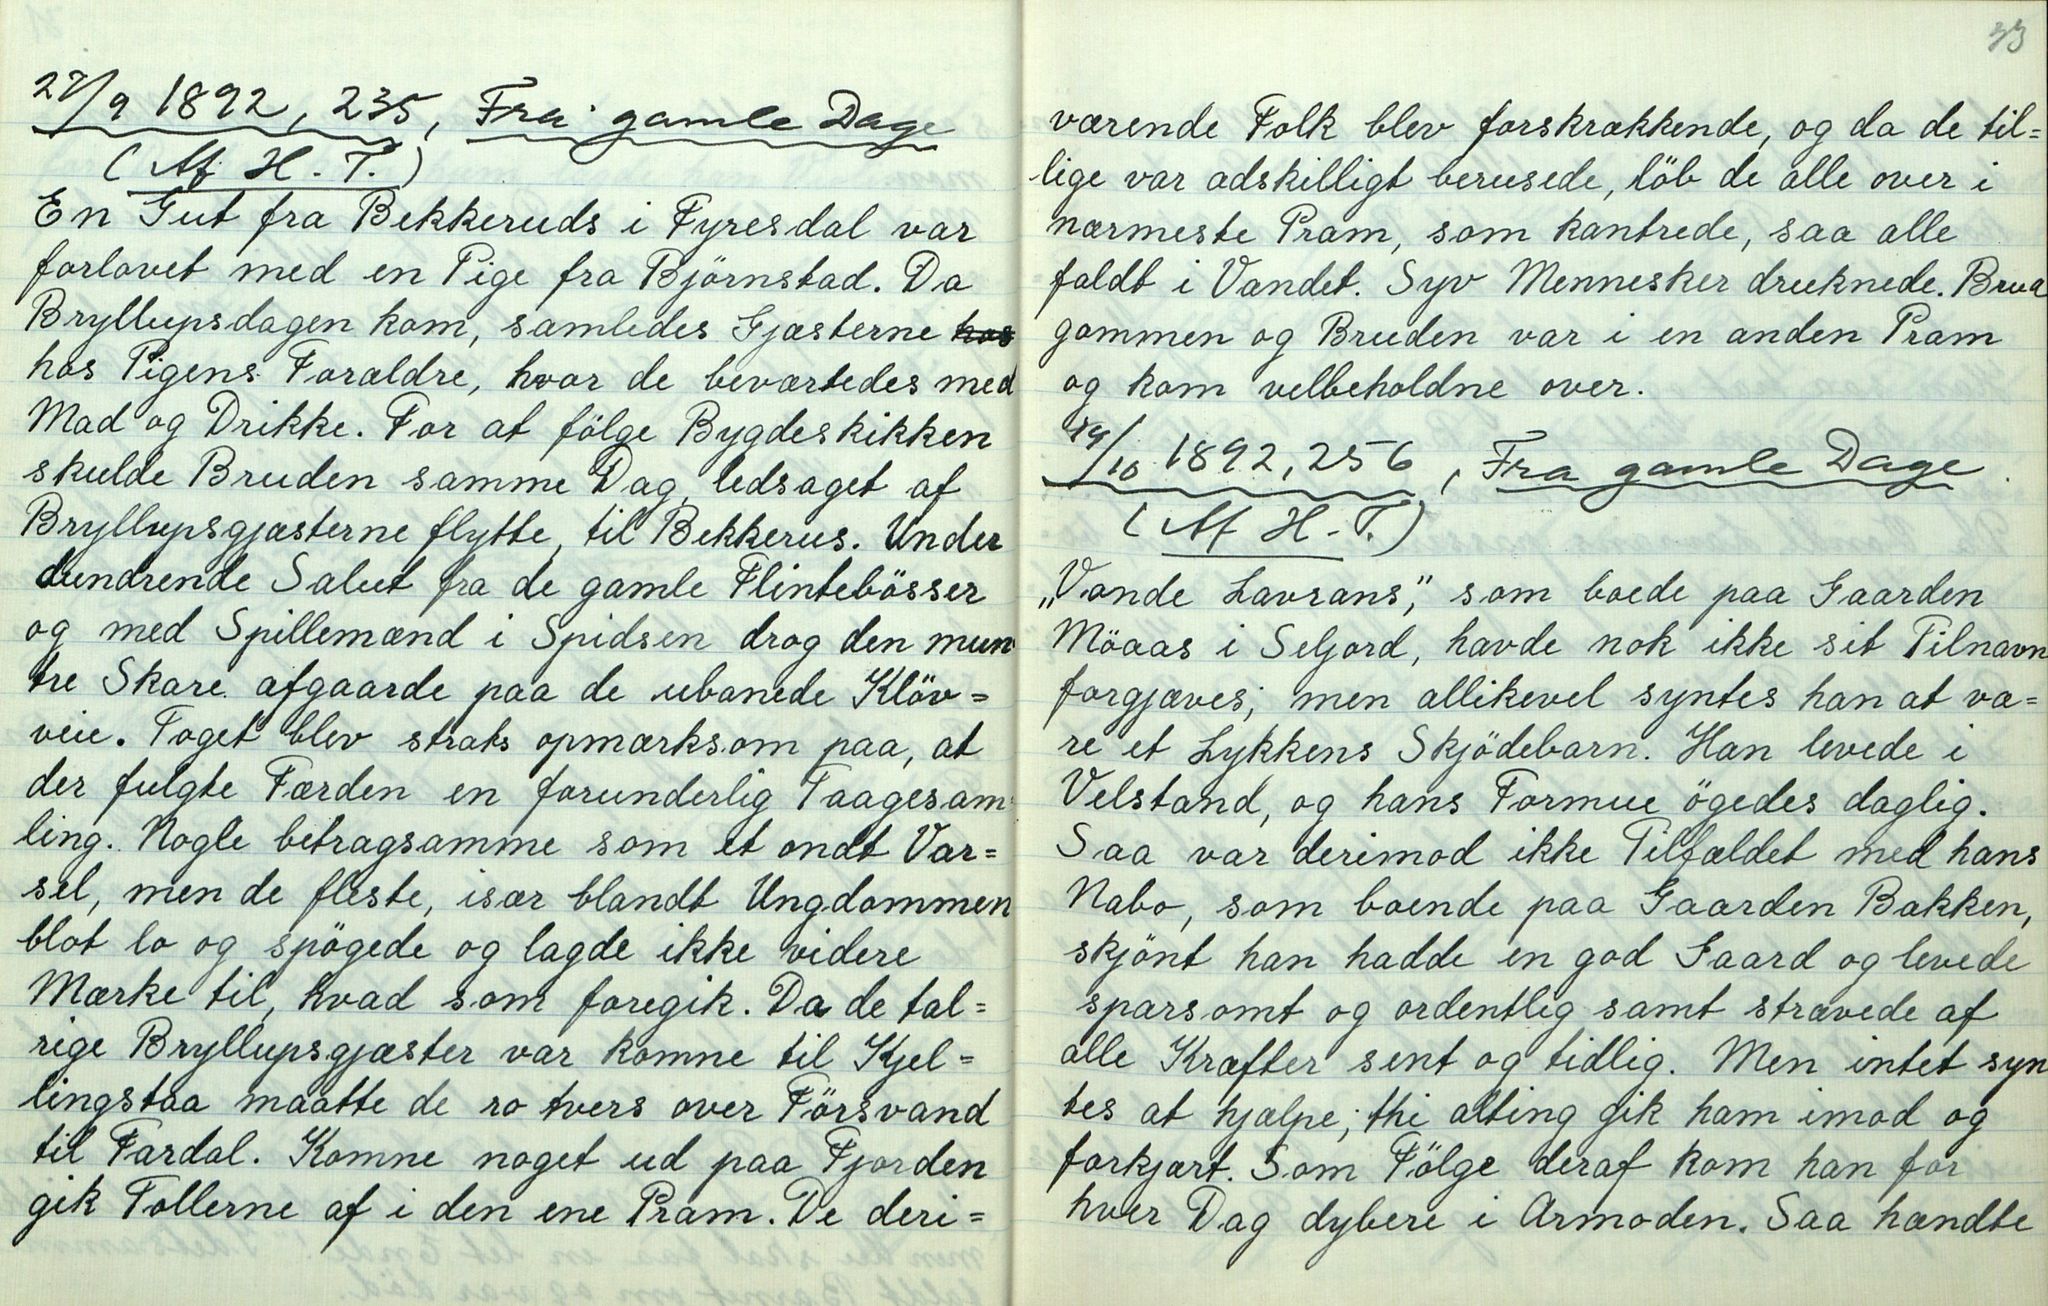 27/9 1892, 235, Fra gamle Dage
(Af H. T.)
En Gut fra Bekkeruds i Fyresdal var
forlovet med en Pige fra Björnstad. Da
Bryllupsdagen kom, samledes Gjæsterne hos
hos Pigens Forældre, hvor de beværtedes med
Mad og Drikke. For at fölge Bygdeskikken
skulde Bruden samme Dag, ledsaget af
Bryllupsgjæsterne flytte, til Bekkerus. Under
dundrende Salut fra de gamle Flintebösser
og med Spillemænd i Spidsen drog den mun-
tre Skare afgaarde paa de ubanede Klöv=
veie. Toget blev straks opmærksom paa, at
der fulgte Færden en forunderlig Taagesam-
ling. Nogle betragsamme som et ondt Var=
sel, men de fleste, især blandt Ungdommen
blot lo og spögede og lagde ikke videre
Mærke til, hvad som foregik. Da de tal=
rige Bryllupsgjæster var komne til Kjel=
lingstaa maatte de ro tvers over Försvand
til Fardal. Komne noget ud paa Fjorden
gik Tollerne af i den ene Pram. De deri=
33
værende Folk blev forskrækkende, og da de til=
lige var adskilligt berusede, löb de alle over i
nærmeste Pram, som kantrede, saa alle
faldt i Vandet. Syv Mennesker druknede. Brud
gommen og Bruden var i en anden Pram
og kom velbeholdne over.
14/10 1892, 256, Fra gamle Dage
(Af H. T.)
„Vonde Lavrans", som boede paa Gaarden
Möaas i Seljord, havde nok ikke sit Tilnavn
forgjæves; men allikevel syntes han at væ=
re et Lykkens Skjödebarn. Han levede i
Velstand, og hans Formue ögedes daglig.
Saa var derimod ikke Tilfældet med hans
Nabo, som boende paa Gaarden Bakken,
skjönt han hadde en god Gaard og levede
sparsomt og ordentlig samt strævede af
alle Kræfter sent og tidlig. Men intet syn
tes at hjælpe; thi alting gik ham imod og
forkjært. Som Fölge deraf kom han for
hver Dag dybere i Armoden. Saa hændte